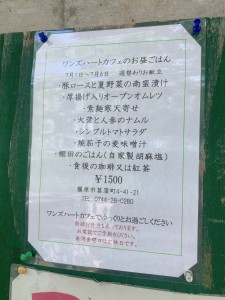 ワンズハートカフェのお昼ごはん
7月1日〜7月6日 週替わりお献立
・豚ロースと夏野菜の南蛮漬け
・厚揚げ入りオープンオムレツ
・素麺寒天寄せ
・大豆と人参のナムル
・シンプルトマトサラダ
・焼茄子の麦味噌汁
・棚田のごはん(自家製胡麻塩)
・食後の珈琲又は紅茶
￥1500
橿原市菖蒲町4-41-21
TEL 0744-28-0280
ワンズハートカフェでゆっくりとお過ごしください